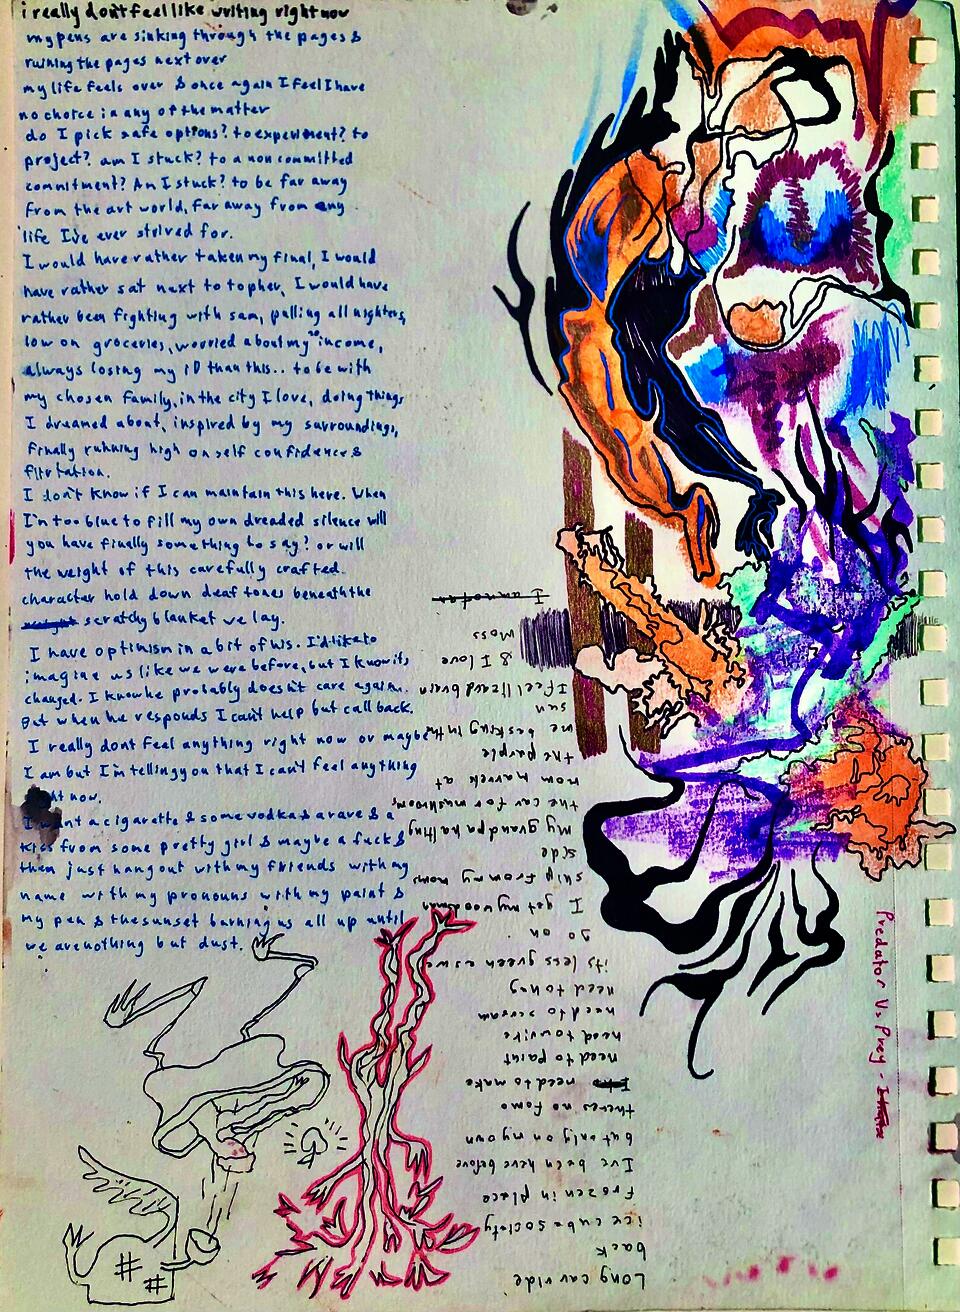 i really don't feel like writing right now
my pens are sinking through the pages &
ruining the pages next over
my life feels over & once again I feel I have
no choice in any of the matter
do I pick safe options? to experiment? to
project? am I stuck? to a non committed
commitment? Am I stuck? to be far away
from the art world, far away from any
life I've ever strived for.
I would have rather taken my final, I would
have rather sat next to topher, I would have
rather been fighting with sam, pulling all nighters,
low on groceries, worried about my income,
always losing my ID than this.. to be with
my chosen family, in the city I love, doing things
I dreamed about, inspired by my surroundings,
finally running high on self confidence &
flirtation.
I don't know if I can maintain this here. When
I'm too blue to fill my own dreaded silence will
you have finally something to say? or will
the weight of this carefully crafted
character hold down deaf tones beneath the
scratchy blanket we lay.
I have optimism in a bit of us. I'd like to
imagine us like we were before, but I know its
changed. I know he probably doesn't care again.
But when he responds I can't help but call back.
I really dont feel anything right now or maybe
I am but I'm telling you that I can't feel anything
right now.
I want a cigarette & some vodka & a rave & a
kiss from some pretty girl & maybe a fuck &
then just hang out with my friends with my
name with my pronouns with my paint &
my pen & the sunset burning us all up until
we are nothing but dust.
Predator Vs Prey -
Long car ride
back
ice cube society
frozen in place
I've been here before
but only on my own
theres no fomo
need to make
need to paint
need to write
need to scream
need to hug
its less green as we
go on
I get my woodman
ship from my moms
side
My grandpa halting
the car for mushrooms
mom marvels at
the purple
me basking in the
sun
I feel lizard brain
& I love
Moss
I am not an